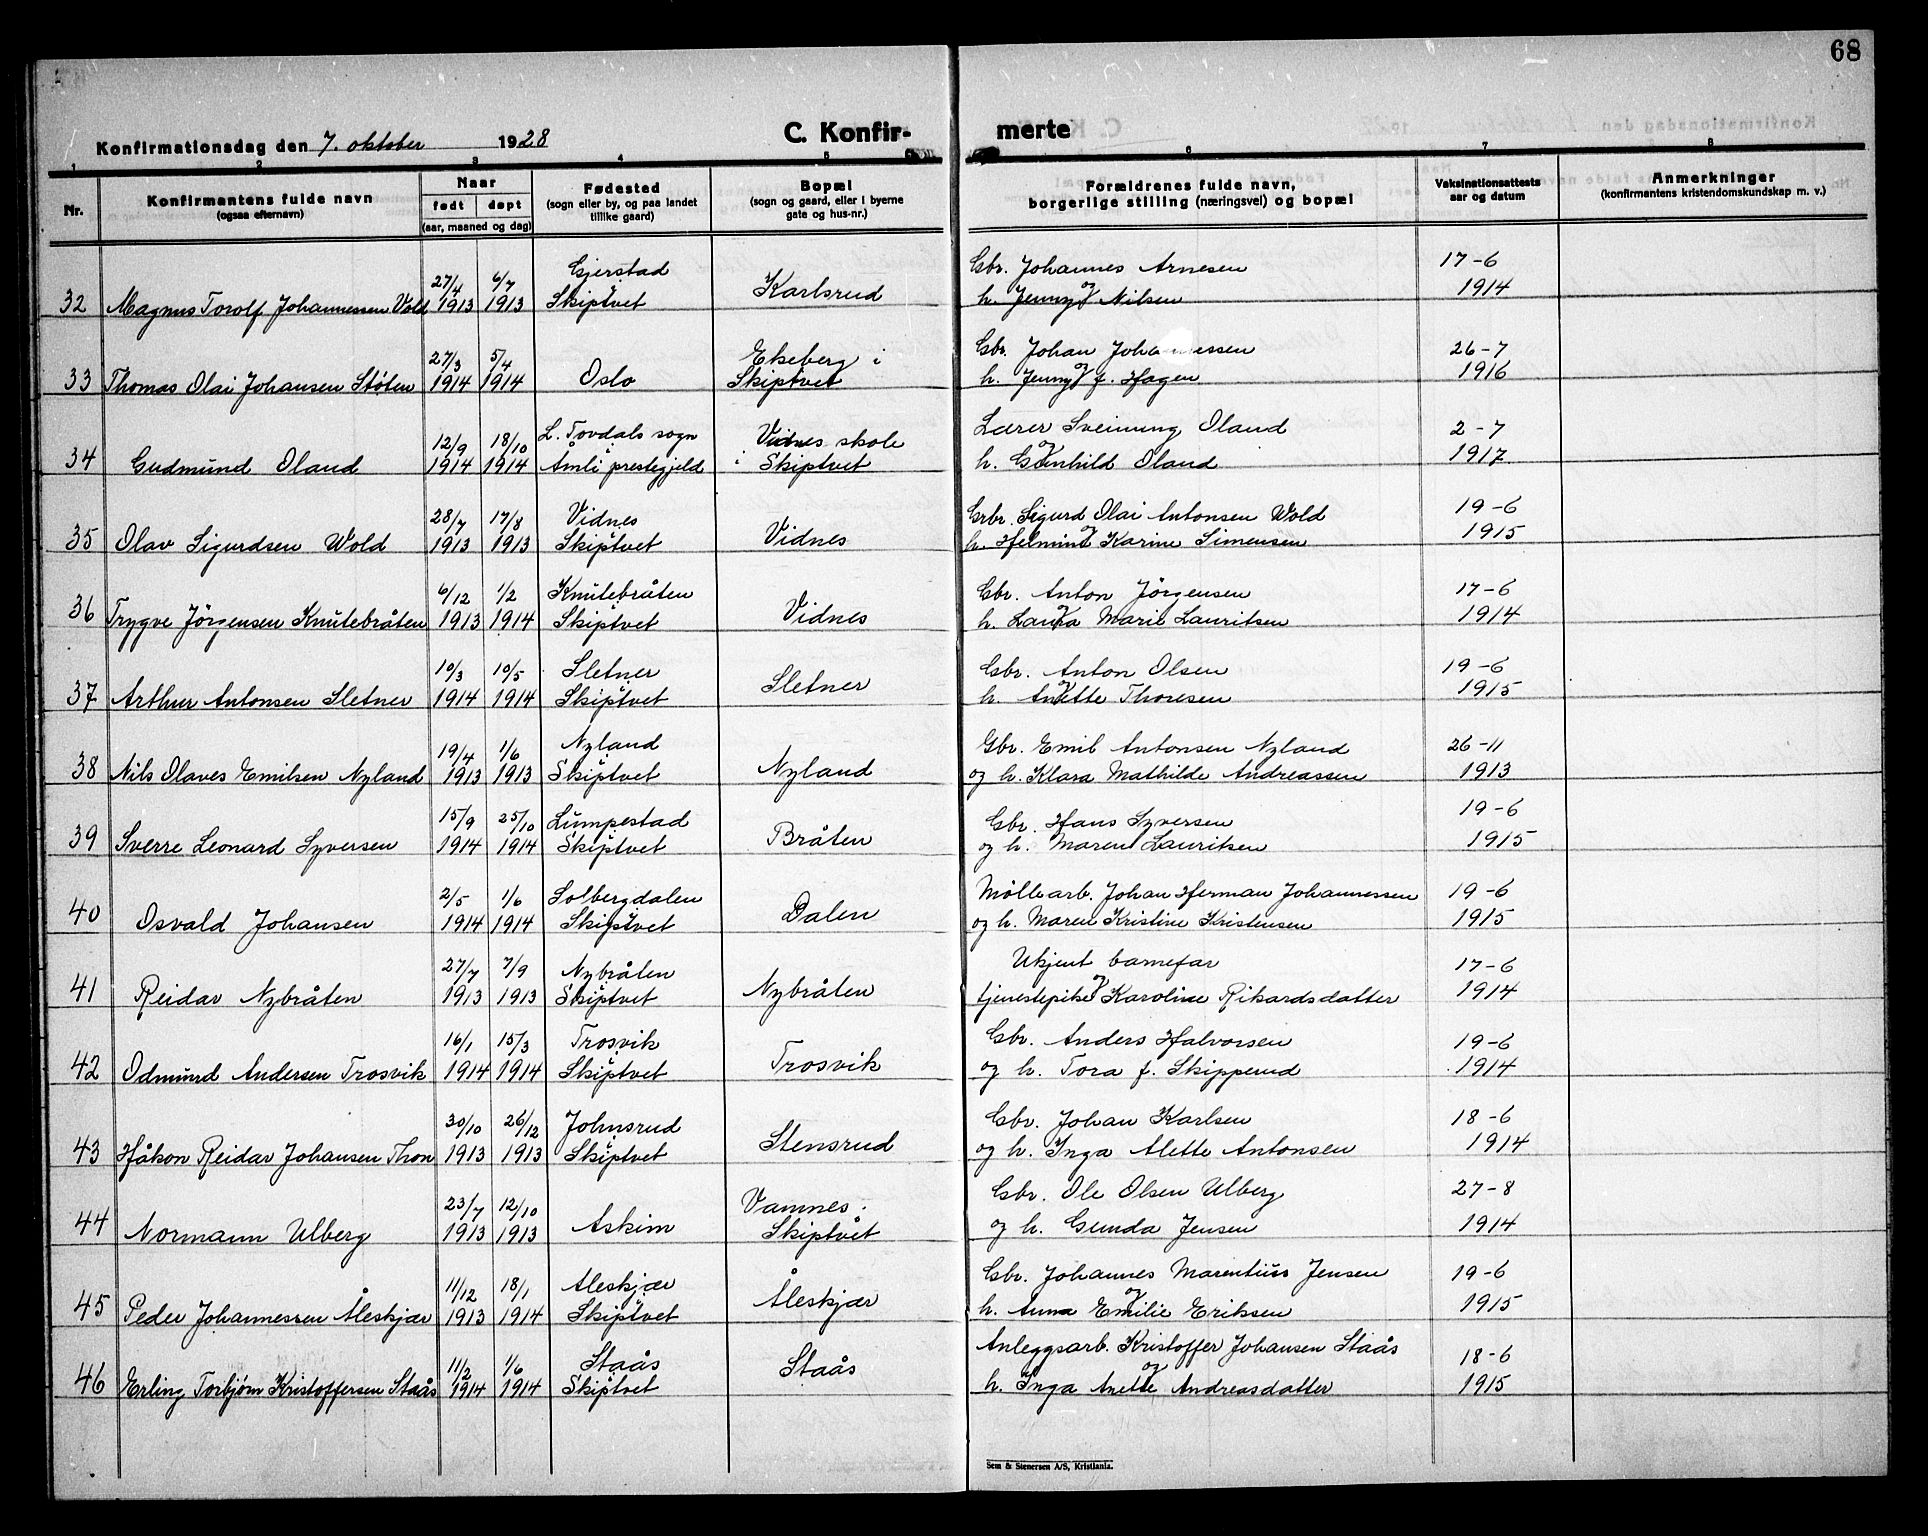 68
Konfirmationsdag den 7. oktober 1928
C. Konfirmerte
1 2 3 4 5 6 7 8
Nr.
Konfirmantens fulde navn
(ogsaa efternavn)
Naar
født døpt
(aar, maaned og dag)
Fødested
(sogn eller by, og paa landet
tillike gaard)
Bopæl
(sogn og gaard, eller i byerne
gate og hus-nr.)
Forældrenes fulde navn,
borgerlige stilling (næringsvei) og bopæl
Vaksinationsattests
aar og datum
Anmerkninger
(konfirmantens kristendomskundskap m. v.)
27/4 6/7 Gjerstad Karlsrud Gbr. Johannes Arnesen 17-6
32 Magnus Torolf Johannessen Vold 1913 1913 Skiptvet og h. Jenny Nilsen 1914
27/3 5/4 Ekeberg i Gbr. Johan Joha nessen 26-7
33 Thomas Olai Johansen Støten 1914 1914 Oslo Skiptvet og h. Jenny f. Hagen 1916
12/9 18/10 L. Tovdals sogn Vidnes skole Lærer Sveinung Oland 2-7
34 Gudmund Oland 1914 1914 i Åmli prestegjeld i Skiptvet og h. Gunhild Oland 1917
28/7 17/8 Vidnes Grbr. Sigurd Olai Antonsen Wold 19-6
35 Olav Sigurdsen Wold 1913 1913 i Skiptvet Vidnes og h. Helmine Karine Simensen 1915
6/12 1/2 Knutebråten Gbr. Anton Jörgensen 17-6
36 Trygve Jörgensen Knutebråten 1913 1914 i Skiptvet Vidnes og h. Laura Marie Lauritsen 1914
10/3 10/5 Sletner Gbr. Anton Olsen 19-6
37 Arthur Antonsen Sletner 1914 1914 i Skiptvet Sletner og h. Anette Thoresen 1915
19/4 1/6 Nyland Gbr. Emil Antonsen Nyland 26-11
38 Nils Olaves Emilsen Nyland 1913 1913 i Skiptvet Nyland og h. Klara Mathilde Andreassen 1913
15/9 25/10 Lumpestad Gbr. Hans Syversen 19-6
39 Sverre Leonard Syversen 1914 1914 i Skiptvet Bråten og h. Maren Lauritsen 1915
2/5 1/6 Solbergdalen Møllearb. Johan Herman Johannessen 19-6
40 Osvald Johansen 1914 1914 i Skiptvet Dalen og h. Maren Kristine Kristensen 1915
27/7 7/9 Nybråten Ukjent barnefar 17-6
41 Reidar Nybråten 1913 1913 i Skiptvet Nybråten og tjenestepike Karoline Rikardsdatter 1914
16/1 15/3 Trosvik Gbr. Anders Halvorsen 19-6
42 Odmund Andersen Trosvik 1914 1914 i Skiptvet Trosvik og h. Tora f. Skipperud 1914
30/10 26/12 Johnsrud Gbr. Johan Karlsen 18-6
43 Håkon Reidar Johansen Thon 1913 1913 i Skiptvet Stensrud og h. Inga Alette Antonsen 1914
23/7 12/10 Vamnes i Gbr. Ole Olsen Ulberg 27-8
44 Normann Ulberg 1913 1913 Askim Skiptvet og h. Gunda Jensen 1914
11/12 18/1 Åleskjær Gbr. Johannes Marentius Jensen 19-6
45 Peder Johannessen Åleskjær 1913 1914 i Skiptvet Åleskjær og h. Anna Emilie Eriksen 1915
11/2 1/6 Staås Anleggsarb. Kristoffer Johansen Staås 18-6
46 Erling Torbjørn Kristoffersen Staås 1914 1914 i Skiptvet Staås og h. Inga Anette Andreasdatter 1915
Sem & Stenersen A/S, Kristiania.